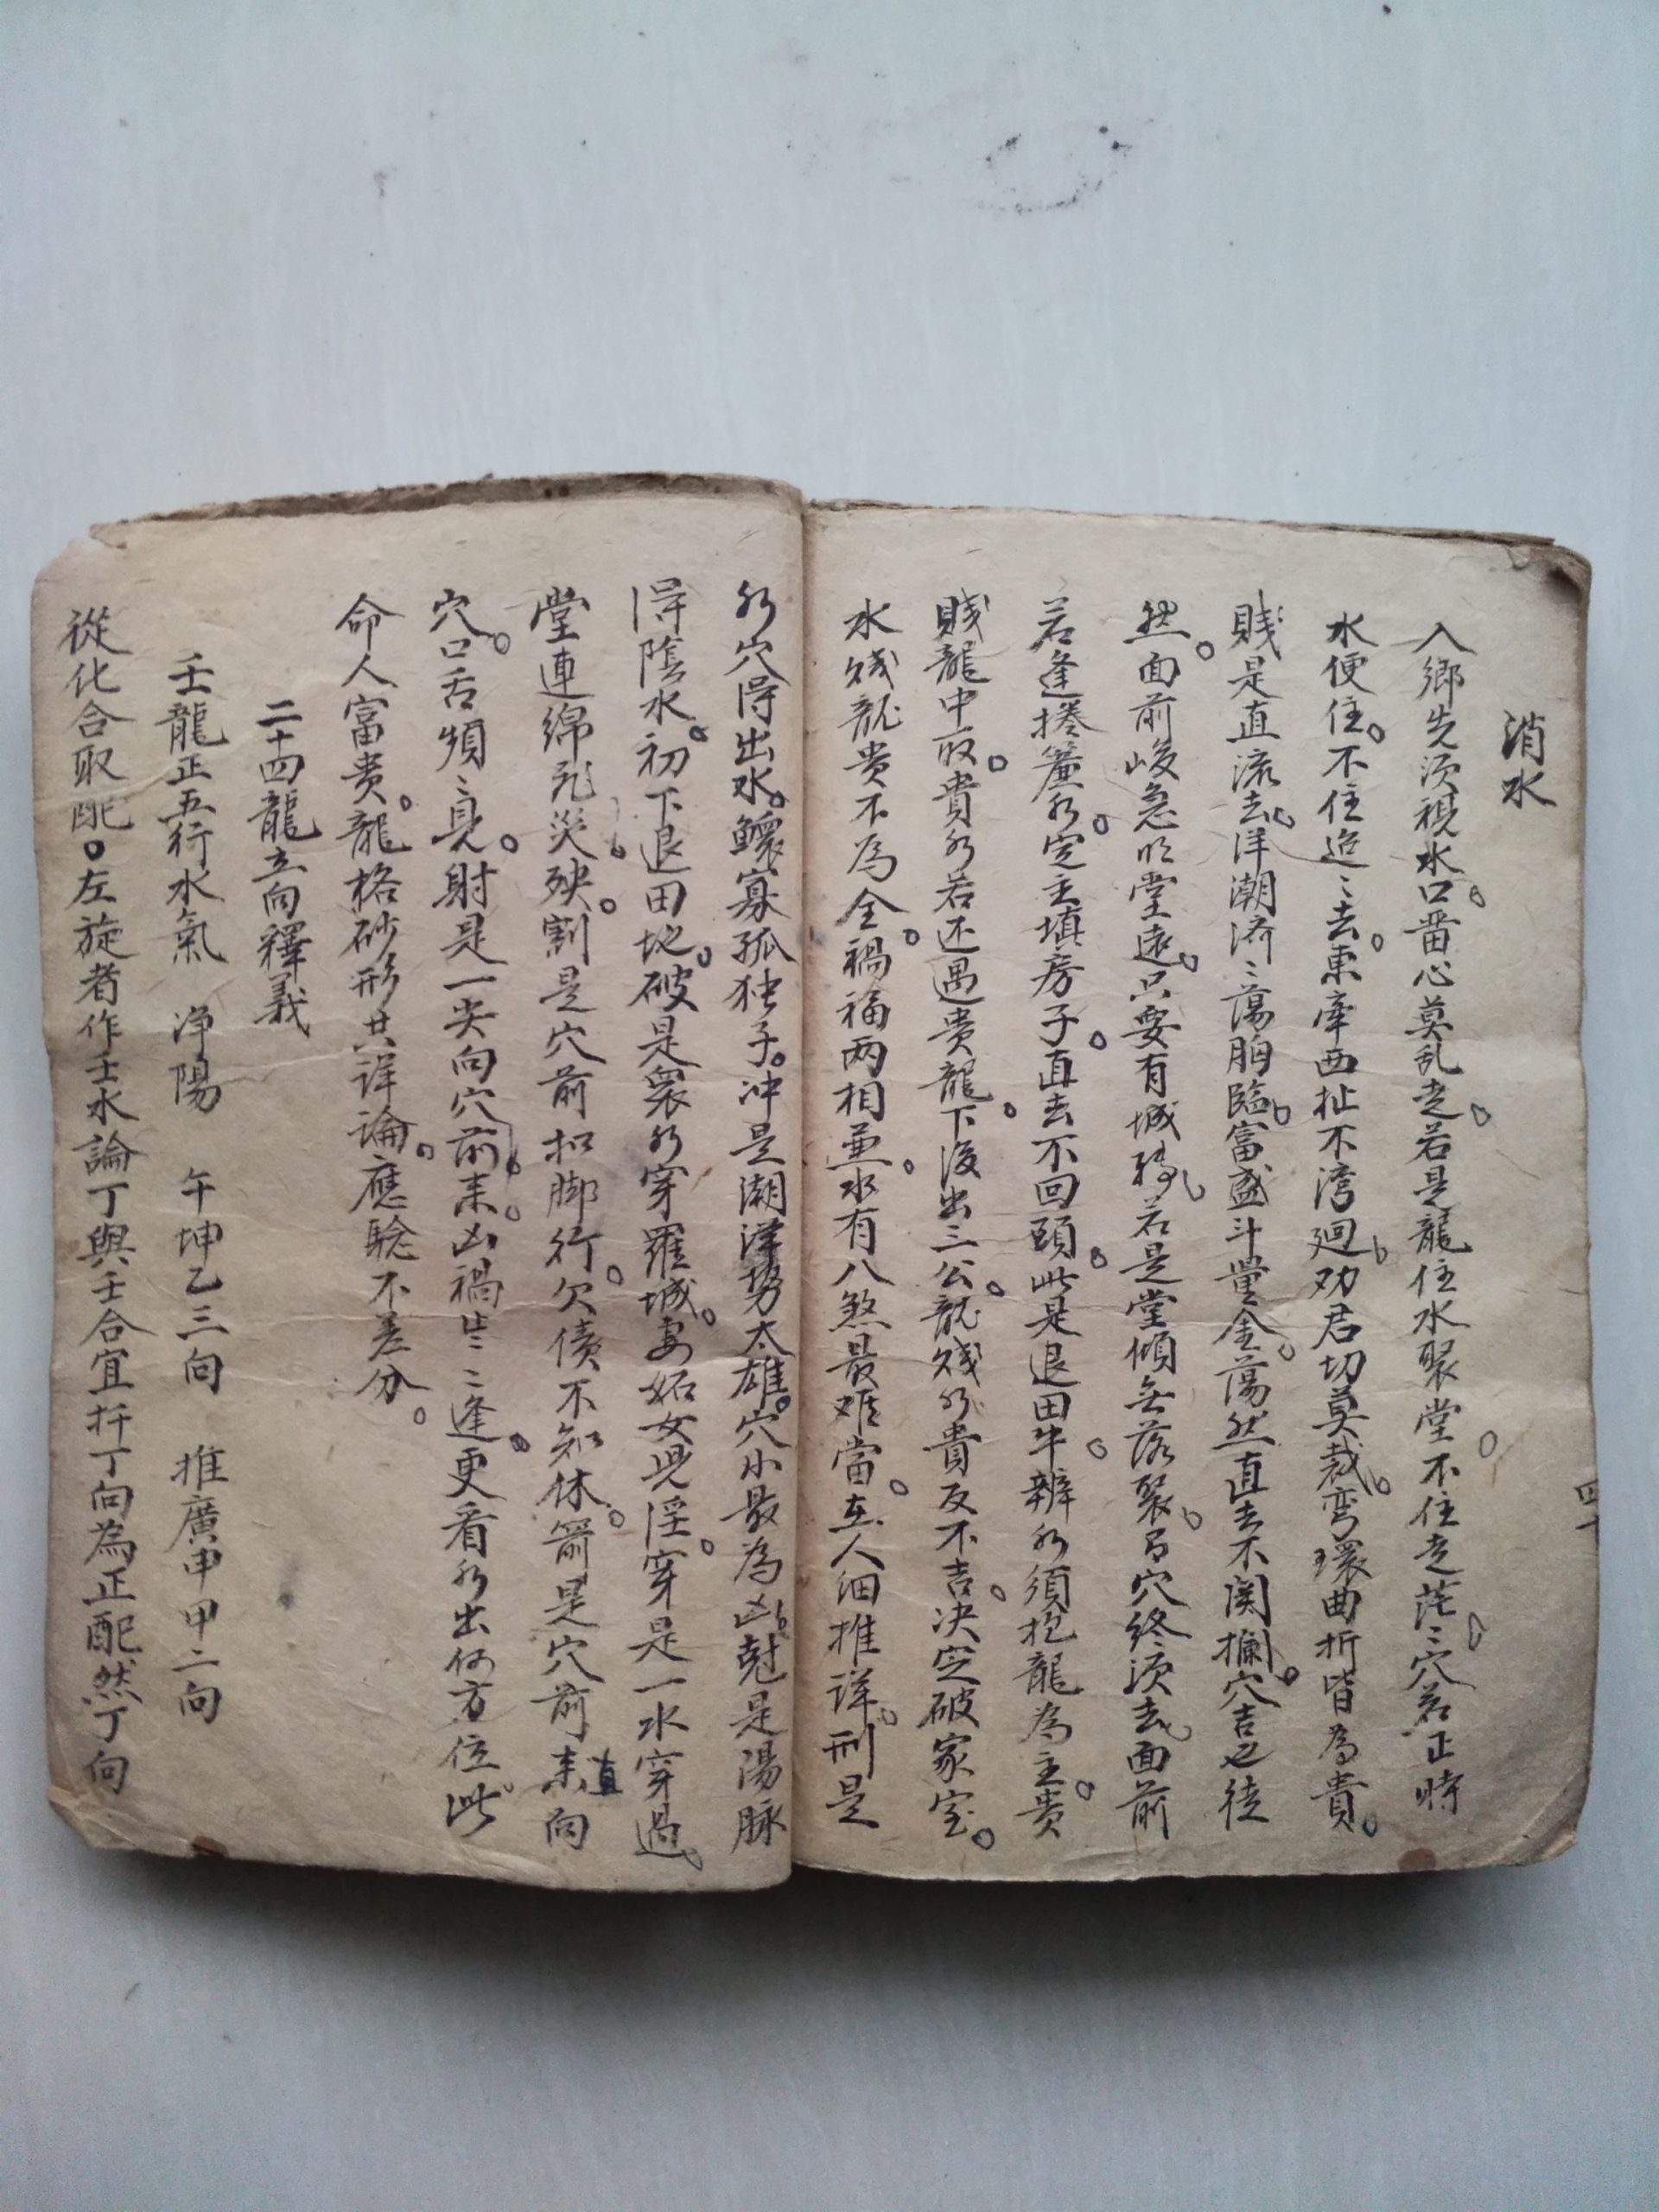 消水
入鄉先須視水口。畱心莫乱走。若是龍住水聚堂。不住走茫〻。穴若正時
水便住。不住迢〻去。東牽西扯不湾廻。劝君切莫裁。弯環曲折皆為貴。
賤是直流去。洋潮济〻蕩胸臨。富盛斗量金。蕩然直去不関攔。穴吉也徒
然。面前峻急明堂遠。只要有城轉。若是堂傾無落聚。吊穴終須去。面前
若逢捲簾水。定主填房子。直去不回頭。此是退田牛。辨水須把龍為主。貴
賤龍中取。貴水若还遇贵龍。下後出三公。龍贱水貴反不吉。决定破家室。
水贱龍贵不為全。禍福两相兼。水有八煞最难當。在人细推详。刑是
水穴得出水。鰥寡孤独子。冲是潮洋势太雄。穴小最為凶。尅是陽脉
得陰水。初下退田地。破是衆水穿羅城。妻妬女児淫。穿是一水穿過
堂。連綿死災殃。割是穴前扣脚行。欠债不知休。箭是穴前来直向
穴。口舌頻〻見。射是一尖向穴前来。凶禍生〻逢。更看水出何方位。此
命人富贵。龍格砂形共详論。應驗不差分。
二十四龍立向釋義
壬龍正五行水氣　净陽　午坤乙三向　推廣申甲二向
從化合取配。左旋者作壬水論丁與壬合宜扦丁向為正配然丁向
四十